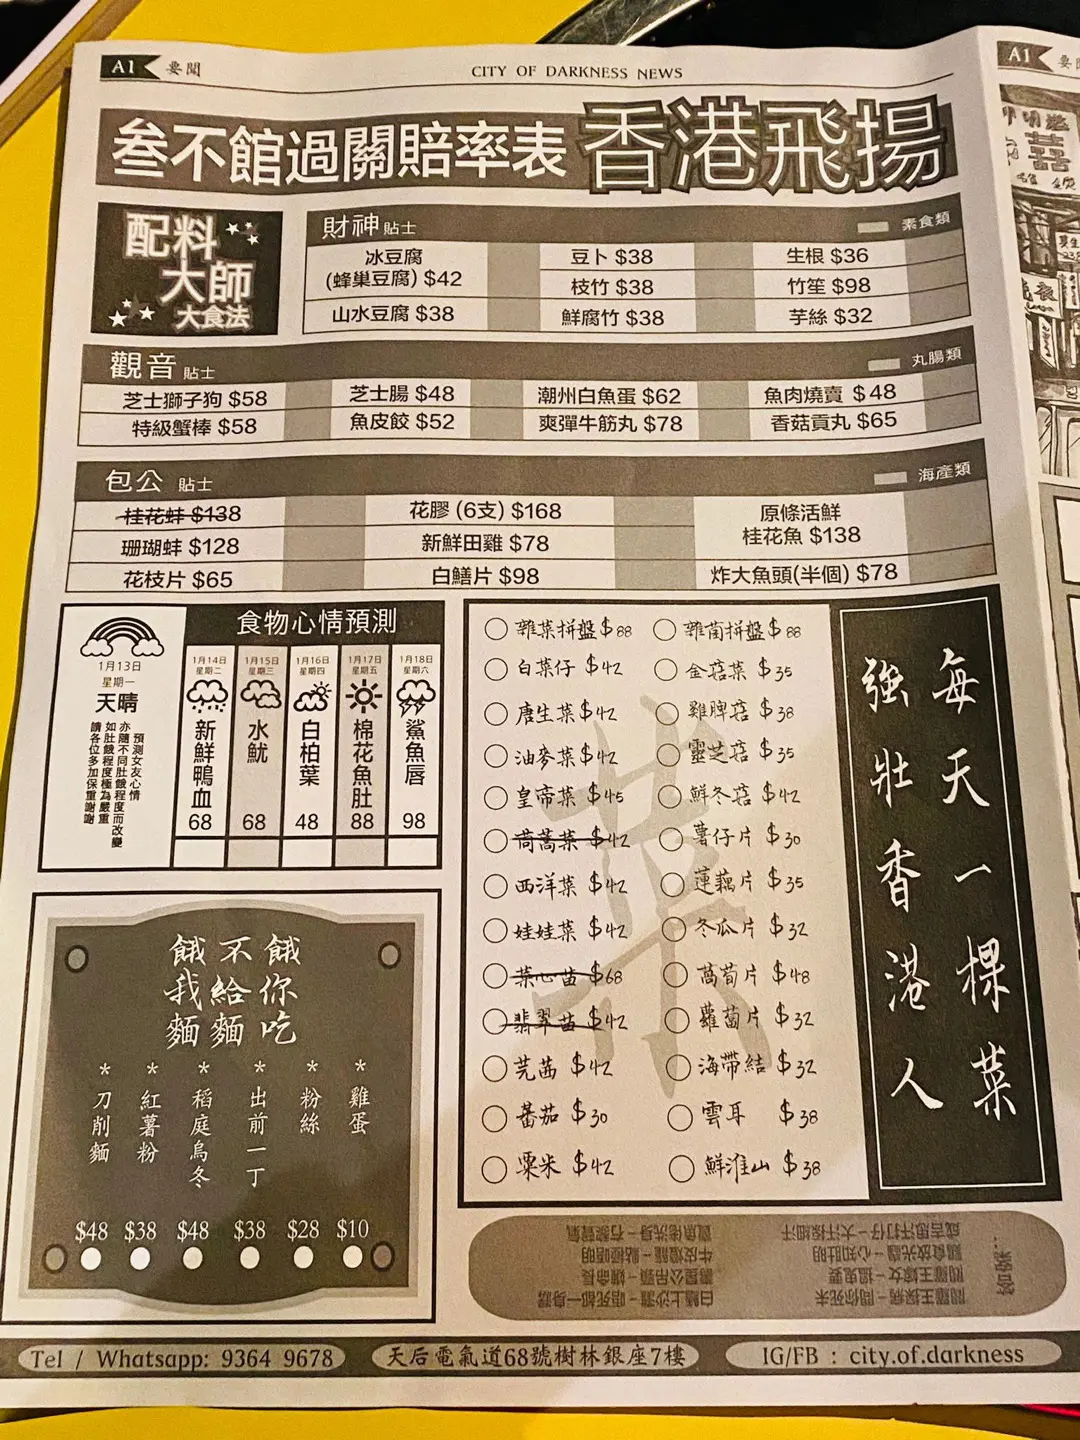 A1 要聞
CITY OF DARKNESS NEWS
A1 要聞
叁不館過關賠率表 香港飛揚
配料
大師
大食法
財神 貼士
素食類
冰豆腐
(蜂巢豆腐) $42
豆卜 $38
生根 $36
枝竹 $38
竹笙 $98
山水豆腐 $38
鮮腐竹 $38
芋絲 $32
觀音 貼士
丸腸類
芝士獅子狗 $58
芝士腸 $48
潮州白魚蛋 $62
魚肉燒賣 $48
特級蟹棒 $58
魚皮餃 $52
爽彈牛筋丸 $78
香菇貢丸 $65
包公 貼士
海產類
桂花蚌 $138
花膠 (6支) $168
原條活鮮
桂花魚 $138
珊瑚蚌 $128
新鮮田雞 $78
花枝片 $65
白鱔片 $98
炸大魚頭(半個) $78
食物心情預測
1月13日
星期一
天晴
預測女友心情
亦隨不同肚餓程度而改變
如肚餓程度極為嚴重
請各位多加保重謝謝
1月14日
星期二
新鮮鴨血
68
1月15日
星期三
水魷
68
1月16日
星期四
白柏葉
48
1月17日
星期五
棉花魚肚
88
1月18日
星期六
鯊魚唇
98
雜菜拼盤 $88
雜菌拼盤 $88
白菜仔 $42
金菇菜 $35
唐生菜 $42
雞脾菇 $38
油麥菜 $42
靈芝菇 $35
皇帝菜 $45
鮮冬菇 $42
茼蒿菜 $42
薯仔片 $30
西洋菜 $42
蓮藕片 $35
娃娃菜 $42
冬瓜片 $32
菜心苗 $68
萵筍片 $48
翡翠苗 $42
蘿蔔片 $32
芫茜 $42
海帶結 $32
蕃茄 $30
雲耳 $38
粟米 $42
鮮淮山 $38
菜
每天一棵菜
強壯香港人
餓不餓
我給你
麵麵吃
* 刀削麵 $48
* 紅薯粉 $38
* 稻庭烏冬 $48
* 出前一丁 $38
* 粉絲 $28
* 雞蛋 $10
答案:
閻羅王探病－問你死未
閻羅王嫁女－搵鬼要
Tel / Whatsapp: 9364 9678
天后電氣道68號樹林銀座7樓
IG/FB : city.of.darkness